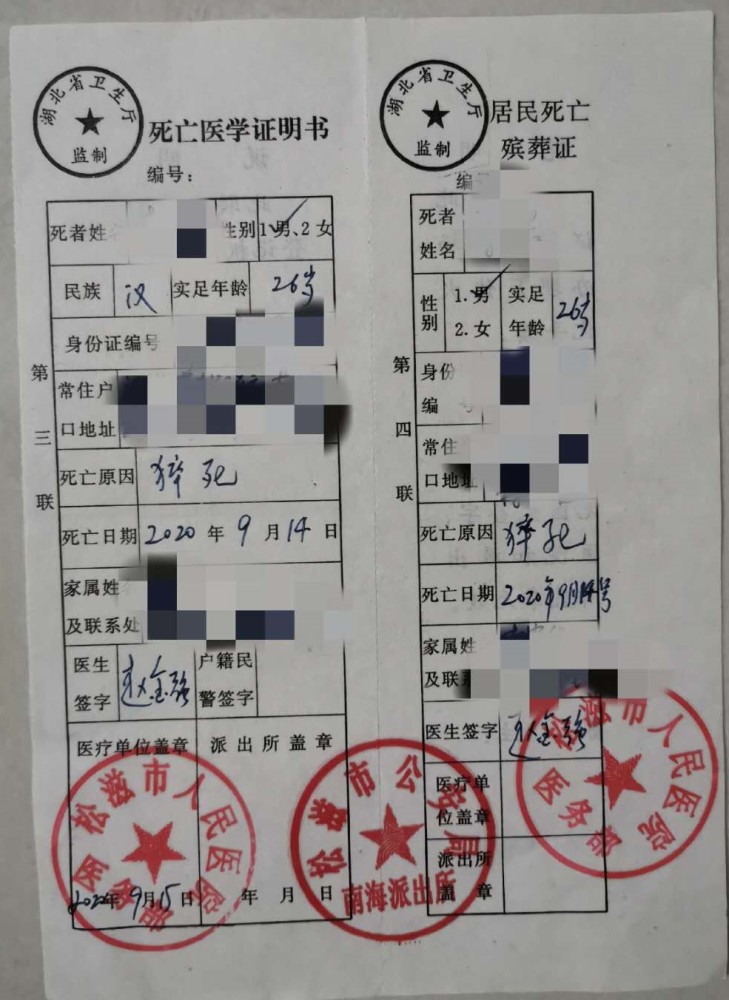 湖北省卫生厅
监制
死亡医学证明书
编号：
死者姓
性别 1.男、2 女
民族 汉 实足年龄 26岁
身份证编号
常住户
口地址
死亡原因 猝死
死亡日期 2020 年 9 月 14 日
家属姓
及联系处
医生
签字
赵金强
户籍民
警签字
医疗单位盖章 派出所盖章
2020年9月15日 年 月 日
第三联
松滋市人民医院
医务部
松滋市公安局
南海派出所
湖北省卫生厅
监制
居民死亡
殡葬证
编
死者
姓名
性别
1.男
2.女
实足
年龄
26岁
身份
编
常住
口地址
死亡原因 猝死
死亡日期 2020年9月14号
家属姓
及联
医生签字 赵金强
医疗单
位盖章
派出所
盖章
第四联
松滋市人民医院
医务部